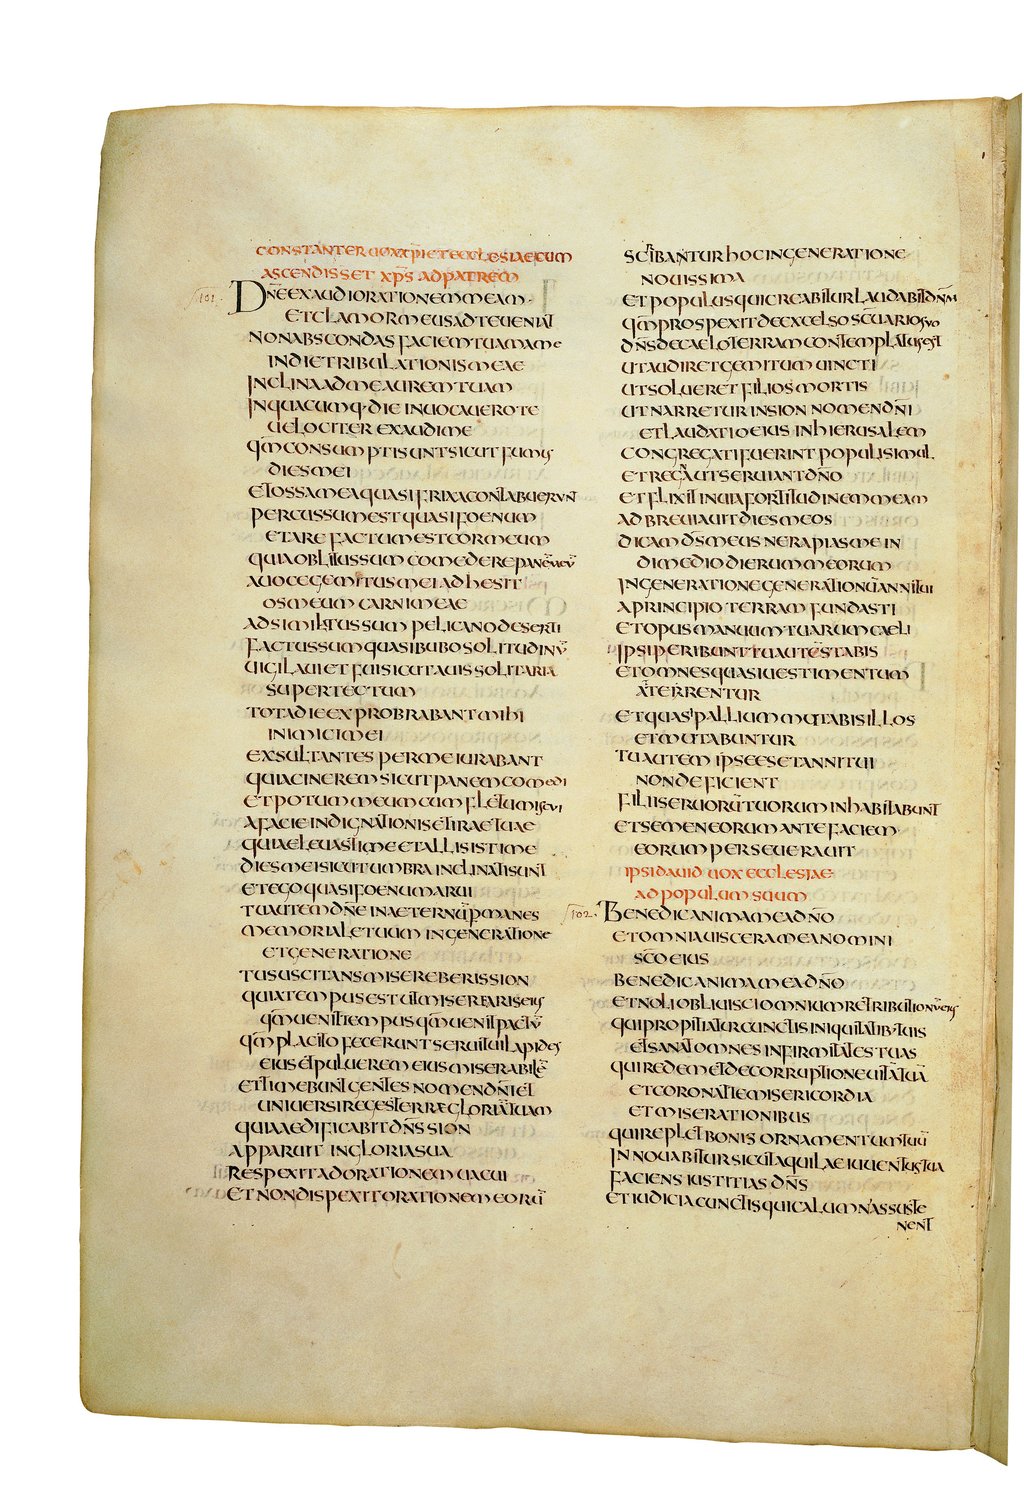 CONSTANTER UOX XP̄I ET ECCLESIAE CUM
ASCENDISSET XP̄S AD PATREM
101 · DN̄E EXAUDI ORATIONEM MEAM ·
ET CLAMOR MEUS AD TE UENIAT
NON ABSCONDAS FACIEM TUAM A ME
IN DIE TRIBULATIONIS MEAE
INCLINA AD ME AUREM TUAM
IN QUACUMQ· DIE INUOCAUERO TE
UELOCITER EXAUDI ME
QM̄ CONSUMPTI SUNT SICUT FUMUS
DIES MEI
ET OSSA MEA QUASI FRIXA CONTABUERUNT
PERCUSSUM EST QUASI FOENUM
ET ARE FACTUM EST COR MEUM
QUIA OBLITUS SUM COMEDERE PANĒ MEŪ
A UOCE GEMITUS MEI ADHESIT
OS MEUM CARNI MEAE
ADSIMILATUS SUM PELICANO DESERTI
FACTUS SUM QUASI BUBO SOLITUDINŪ
UIGILAUI ET FUI SICUT AUIS SOLITARIA
SUPER TECTUM
TOTA DIE EXPROBRABANT MIHI
INIMICI MEI
EXSULTANTES PER ME IURABANT
QUIA CINEREM SICUT PANEM COMEDI
ET POTUM MEUM CUM FLETU MISCUI
A FACIE INDIGNATIONIS ET IRAE TUAE
QUIA ELEUASTI ME ET ALLISISTI ME
DIES MEI SICUT UMBRA INCLINATI SUNT
ET EGO QUASI FOENUM ARUI
TU AUTEM DN̄E IN AETERNŪ PMANES
MEMORIALE TUUM IN GENERATIONE
ET GENERATIONE
TU SUSCITANS MISEREBERIS SION
QUIA TEMPUS EST UT MISEREARIS EIUS
QM̄ UENIT TEMPUS QM̄ UENIT PACTŪ
QM̄ PLACITO FECERUNT SERUI TUI LAPIDES
EIUS ET PULUEREM EIUS MISERABILE
ET TIMEBUNT GENTES NOMEN DN̄I ET
UNIUERSI REGES TERRAE GLORIĀ TUAM
QUIA AEDIFICABIT DN̄S SION
APPARUIT IN GLORIA SUA
RESPEXIT AD ORATIONEM UACUI
ET NON DISPEXIT ORATIONEM EORŪ
SCRIBANTUR HOC IN GENERATIONE
NOUISSIMA
ET POPULUS QUI CREABITUR LAUDABIT DN̄M
QM̄ PROSPEXIT DE EXCELSO SC̄UARIO SUO
DN̄S DE CAELO TERRAM CONTEMPLATUS EST
UT AUDIRET GEMITUM UINCTI
UT SOLUERET FILIOS MORTIS
UT NARRETUR IN SION NOMEN DN̄I
ET LAUDATIO EIUS IN HIERUSALEM
CONGREGATI FUERINT POPULI SIMUL
ET REGNA UT SERUIANT DN̄O
ET FLIXIT IN UIA FORTITUDINEM MEAM
ADBREUIAUIT DIES MEOS
DICAM DS̄ MEUS NE RAPIAS ME IN
DIMEDIO DIERUM MEORUM
IN GENERATIONE GENERATIONŪ ANNI TUI
A PRINCIPIO TERRAM FUNDASTI
ET OPUS MANUUM TUARUM CAELI
IPSI PERIBUNT TU AUTĒ STABIS
ET OMNES QUASI UESTIMENTUM
ATERRENTUR
ET QUASI PALLIUM MUTABIS ILLOS
ET MUTABUNTUR
TU AUTEM IPSE ES ET ANNI TUI
NON DEFICIENT
FILII SERUORŪ TUORUM INHABITABUNT
ET SEMEN EORUM ANTE FACIEM
EORUM PERSEUERAUIT
IPSI DAUID UOX ECCLESIAE
AD POPULUM SUUM
102 · BENEDIC ANIMA MEA DN̄O
ET OMNIA UISCERA MEA NOMINI
SC̄O EIUS
BENEDIC ANIMA MEA DN̄O
ET NOLI OBLIUISCI OMNIUM RETRIBUTIONŪ EIUS
QUI PROPITIATUR CUNCTIS INIQUITATIB· TUIS
ET SANAT OMNES INFIRMITATES TUAS
QUI REDEMET DE CORRUPTIONE UITĀ TUĀ
ET CORONAT TE MISERICORDIA
ET MISERATIONIBUS
QUI REPLET BONIS ORNAMENTUM TUŪ
INNOUABITUR SICUT AQUILAE IUUENTUS TUA
FACIENS IUSTITIAS DN̄S
ET IUDICIA CUNCTIS QUI CALUMNIAS SUSTE
NENT